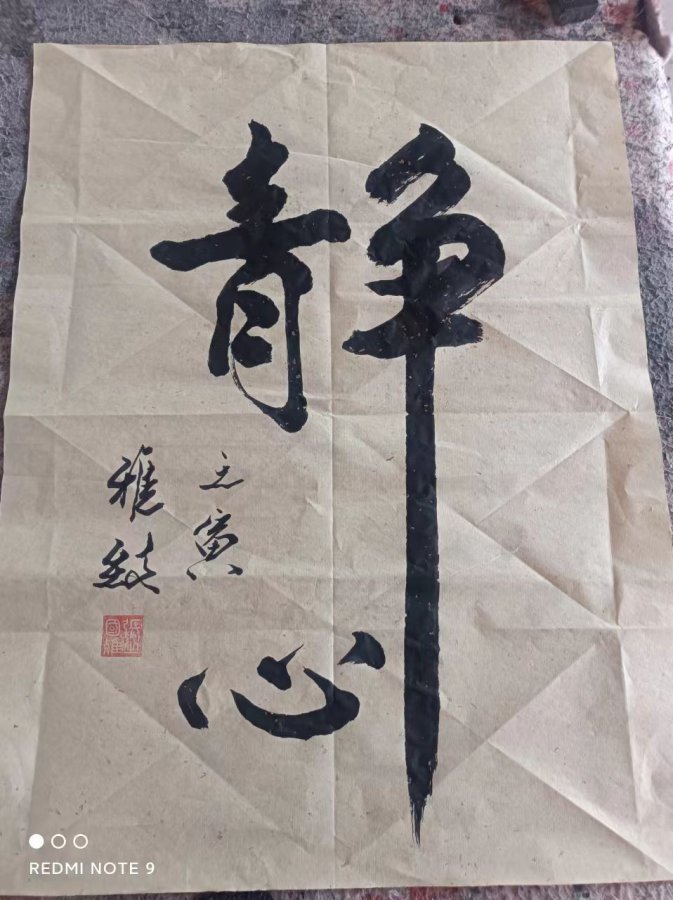 静心
壬寅
雅
REDMI NOTE 9